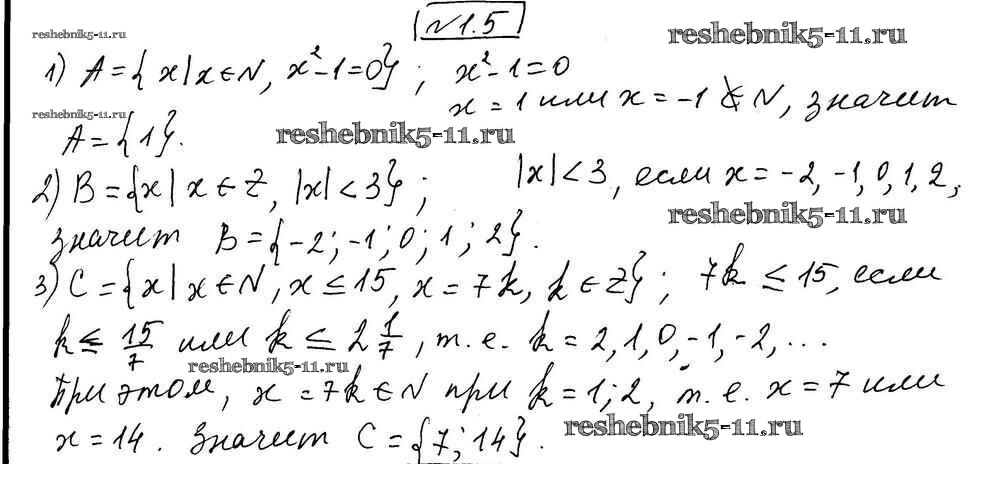 №1.5
reshebnik5-11.ru
reshebnik5-11.ru
1) A={x|x∈N, x²-1=0}; x²-1=0
x=1 или x=-1 ∉ N, значит
reshebnik5-11.ru
A={1}.
reshebnik5-11.ru
2) B={x|x∈Z, |x|<3}; |x|<3, если x=-2,-1,0,1,2,
reshebnik5-11.ru
значит B={-2;-1;0;1;2}.
3) C={x|x∈N, x≤15, x=7k, k∈Z}; 7k≤15, если
k≤15/7 или k≤2 1/7, т.е. k=2,1,0,-1,-2,...
reshebnik5-11.ru
При этом, x=7k∈N при k=1;2, т.е. x=7 или
x=14. Значит C={7;14}.
reshebnik5-11.ru